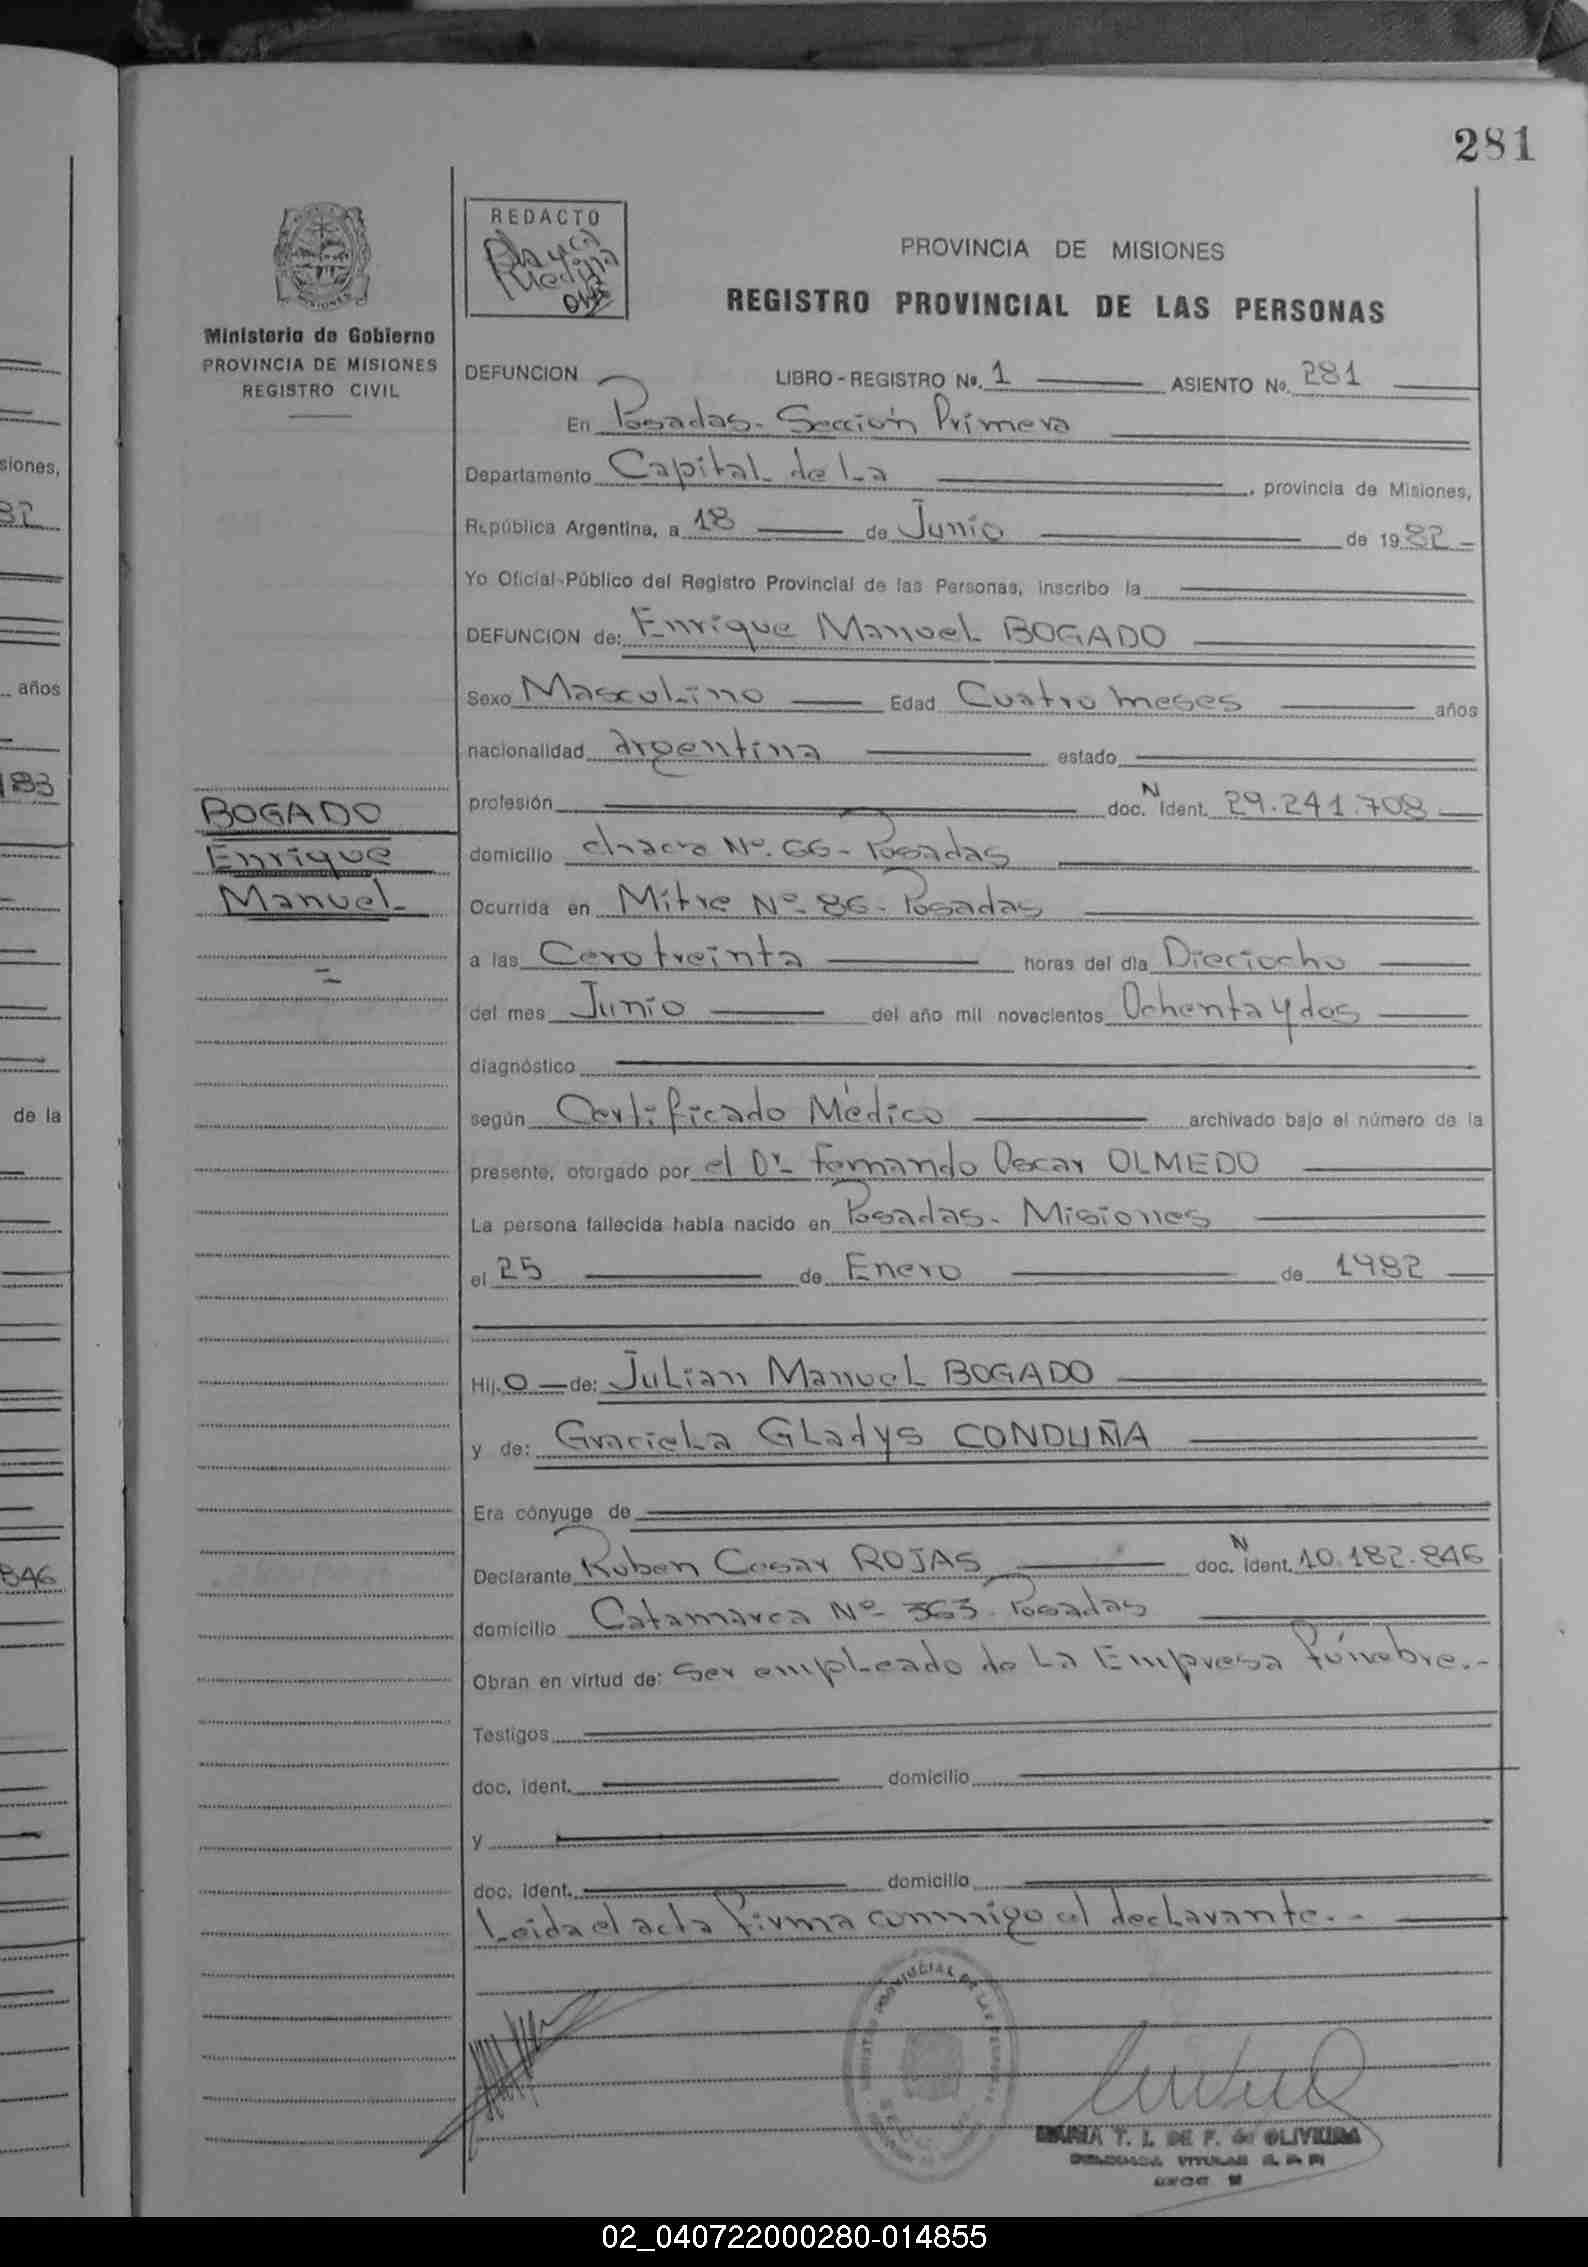 281
REDACTO
PROVINCIA DE MISIONES
REGISTRO PROVINCIAL DE LAS PERSONAS
MISIONES
Ministerio de Gobierno
PROVINCIA DE MISIONES
REGISTRO CIVIL
DEFUNCION LIBRO-REGISTRO Nº. 1 ASIENTO Nº. 281
En Posadas - Sección Primera
Departamento Capital de La , provincia de Misiones,
República Argentina, a 18 de Junio de 1982 -
Yo Oficial Público del Registro Provincial de las Personas, inscribo la
DEFUNCION de: Enrique Manuel BOGADO
Sexo Masculino Edad Cuatro meses años
nacionalidad Argentina estado
profesión doc. N Ident. 29.241.708
domicilio chacra Nº. 66 - Posadas
Ocurrida en Mitre Nº 86 - Posadas
a las Cero treinta horas del día Dieciocho
del mes Junio del año mil novecientos Ochenta y dos
diagnóstico
según Certificado Médico archivado bajo el número de la
presente, otorgado por el Dr. Fernando Oscar OLMEDO
La persona fallecida había nacido en Posadas - Misiones
el 25 de Enero de 1982
Hij.o de: Julian Manuel BOGADO
y de: Graciela Gladys CONDUÑA
Era cónyuge de
Declarante Ruben Cesar ROJAS doc. N Ident. 10.182.846
domicilio Catamarca Nº 363 - Posadas
Obran en virtud de: Ser empleado de La Empresa fúnebre.-
Testigos
doc. ident. domicilio
y
doc. ident. domicilio
Leida el acta firma conmigo el declarante.-
BOGADO
Enrique
Manuel-
MARIA T. I. DE F. de OLIVEIRA
siones,
82
años
183
de la
846
02_040722000280-014855